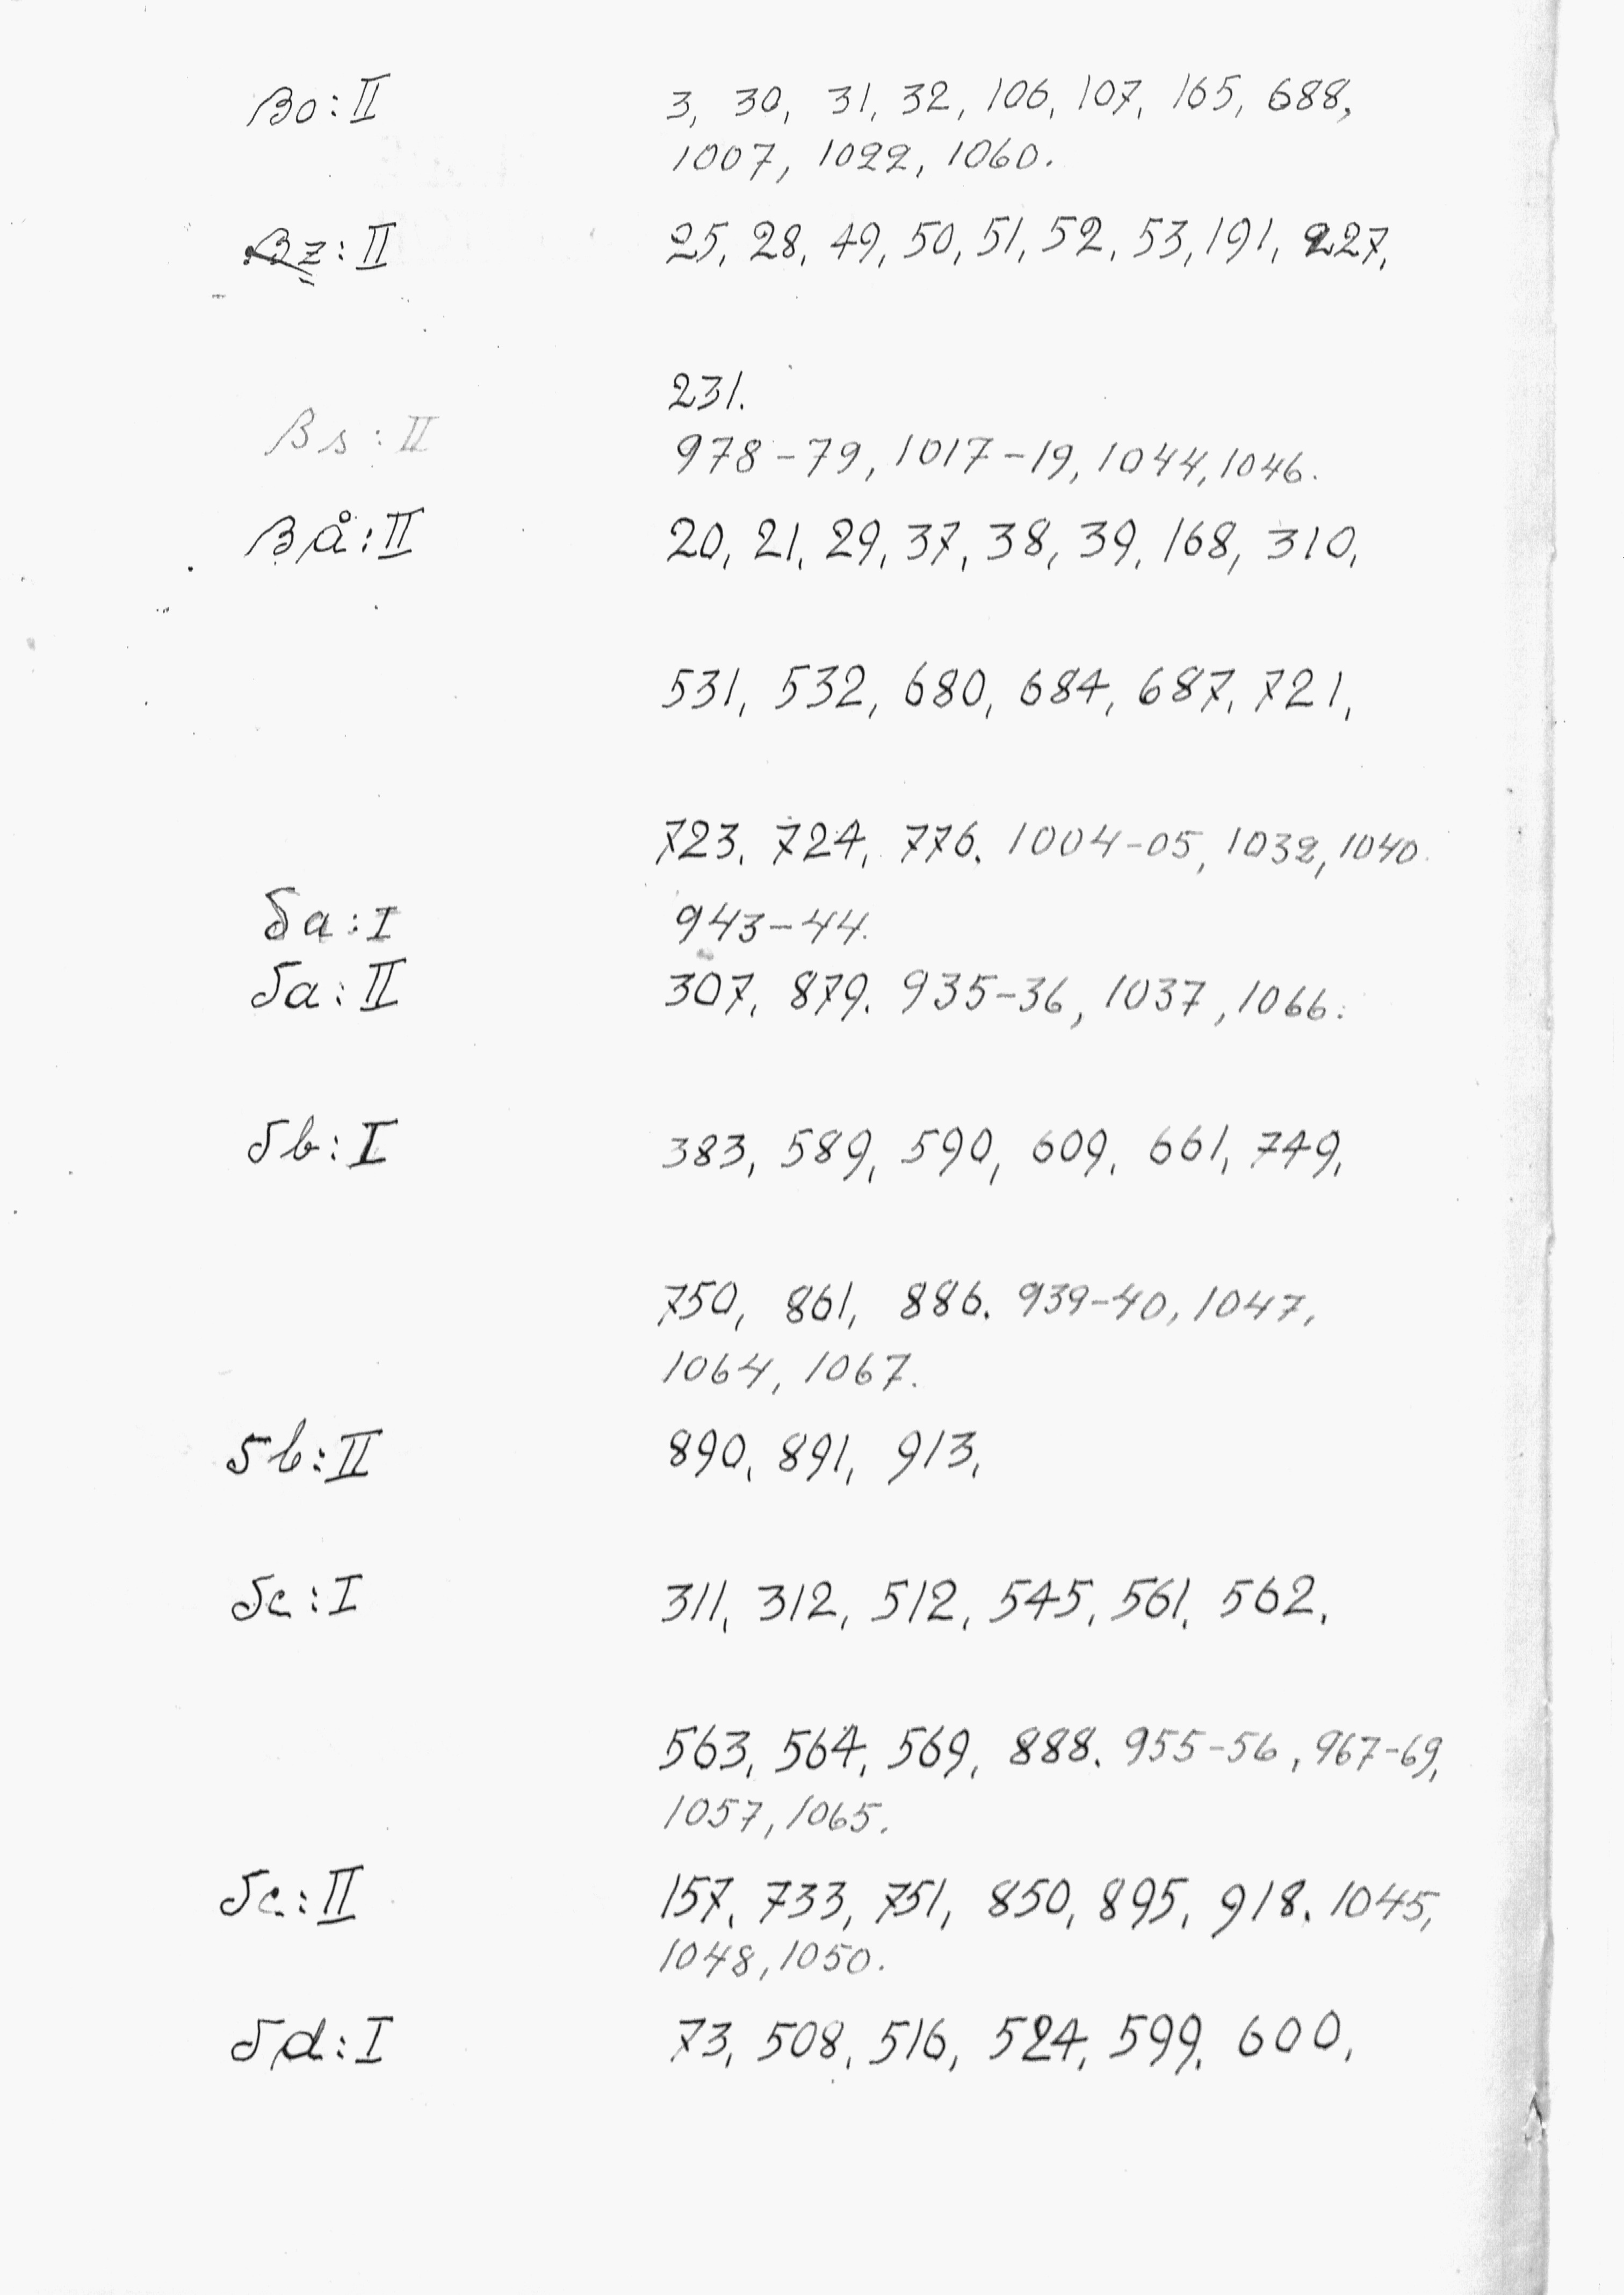 Bo:II 3, 30, 31, 32, 106, 107, 165, 688,
1007, 1022, 1060.
Bz:II 25, 28, 49, 50, 51, 52, 53, 191, 227,
231.
Bs:II 978-79, 1017-19, 1044, 1046.
Bå:II 20, 21, 29, 37, 38, 39, 168, 310,
531, 532, 680, 684, 687, 721,
723, 724, 776. 1004-05, 1032, 1040.
5a:I 943-44.
5a:II 307, 879. 935-36, 1037, 1066.
5b:I 383, 589, 590, 609, 661, 749,
750, 861, 886. 939-40, 1047,
1064, 1067.
5b:II 890, 891, 913,
5c:I 311, 312, 512, 545, 561, 562,
563, 564, 569, 888. 955-56, 967-69,
1057, 1065.
5c:II 157, 733, 751, 850, 895, 918. 1045,
1048, 1050.
5d:I 73, 508, 516, 524, 599, 600,